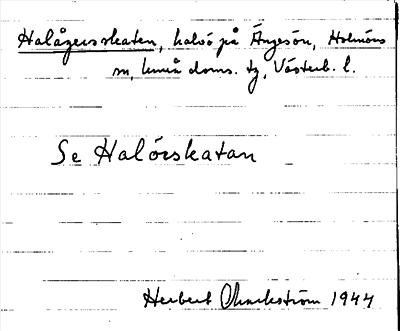 Halågersskaten, halvö på Ängesön, Holmöns
sn, Umeå doms. tg, Västerb. l.
Se Halörskatan
Herbert Markström 1944